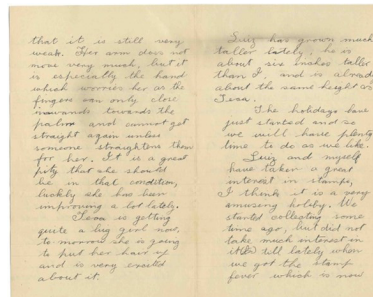 that it is still very
weak. Her arm does not
move very much, but it
is especially the hand
which worries her as the
fingers can only close
towards the
palm and cannot get
straight again unless
someone straightens them
for her. It is a great
pity that she should
be in that condition,
luckily she has been
improving a lot lately.
Tesa is getting
quite a big girl now,
to morrow she is going
to put her hair up
and is very excited
about it.
Luiz has grown much
taller lately, he is
about six inches taller
than I, and is already
about the same height as
Tesa.
The holidays have
just started and so
we will have plenty
time to do as we like.
Luiz and myself
have taken a great
interest in stamps,
I think it is a very
amusing hobby. We
started collecting some
time ago, but did not
take much interest in
it till lately when
we got the stamp
fever which is now